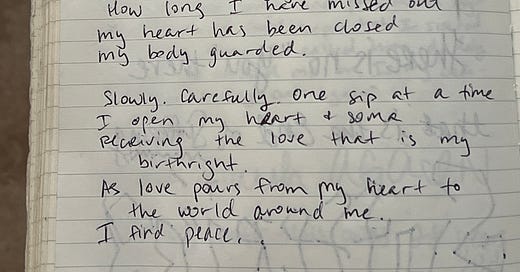 How long I have missed out
my heart has been closed
my body guarded.
Slowly. Carefully. One sip at a time
I open my heart + soma
receiving the love that is my
birthright.
As love pours from my heart to
the world around me.
I find peace.